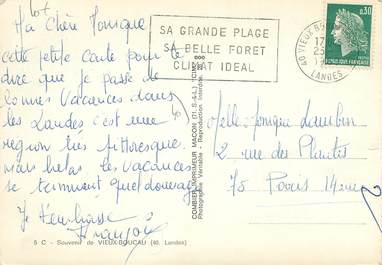 Ma Chère Monique
cette petite Carte pour te
dire que je passe de
bonnes Vacances dans
les Landes c'est une
région très pittoresque,
mais helas les vacances
se terminent
Je t'embrasse
Françoise
5 C - Souvenir de VIEUX-BOUCAU (40, Landes)
SA GRANDE PLAGE
SA BELLE FORET
CLIMAT IDEAL
40 VIEUX BOUCAU
17
LANDES
0,30
REPUBLIQUE FRANCAISE
COMBIER IMPRIMEUR MACON (71, S.-&-L.) "CIM"
Photographie Véritable - Reproduction Interdite
Melle Monique
2 rue des Plantes
75 Paris 14ème